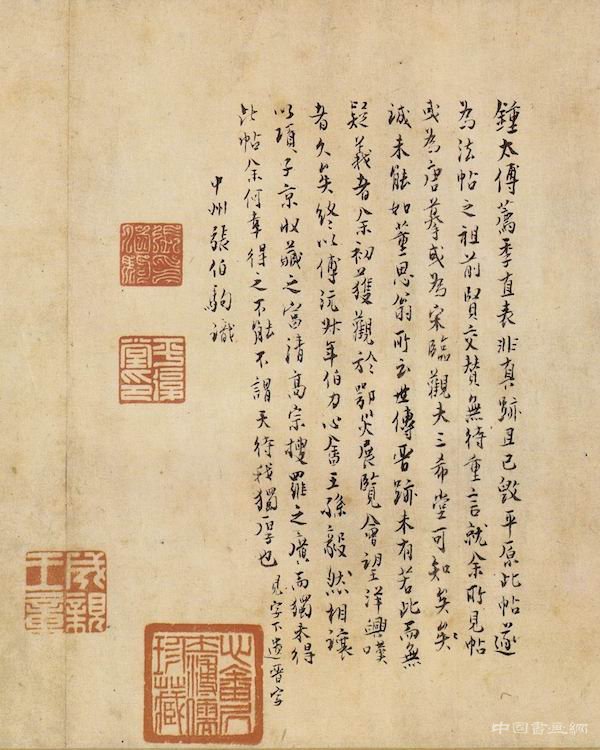 鍾太傅薦季直表非真跡且已毀平原此帖遂
為法帖之祖前賢交贊無待重言就余所見帖
或為唐摹或為宋臨觀夫三希堂可知矣矣
誠未能如董思翁所云世傳晉跡未有若此而無
疑義者余初獲觀於鄂災展覽會望洋興嘆
者久矣終以傅沅叔年伯力心畬王孫毅然相讓
以項子京收藏之富清高宗搜羅之廣而獨未得
此帖余何幸得之不能不謂天待我獨厚也見字下遺晉字
中州張伯駒識
平復堂印
成親王章
中国书画網